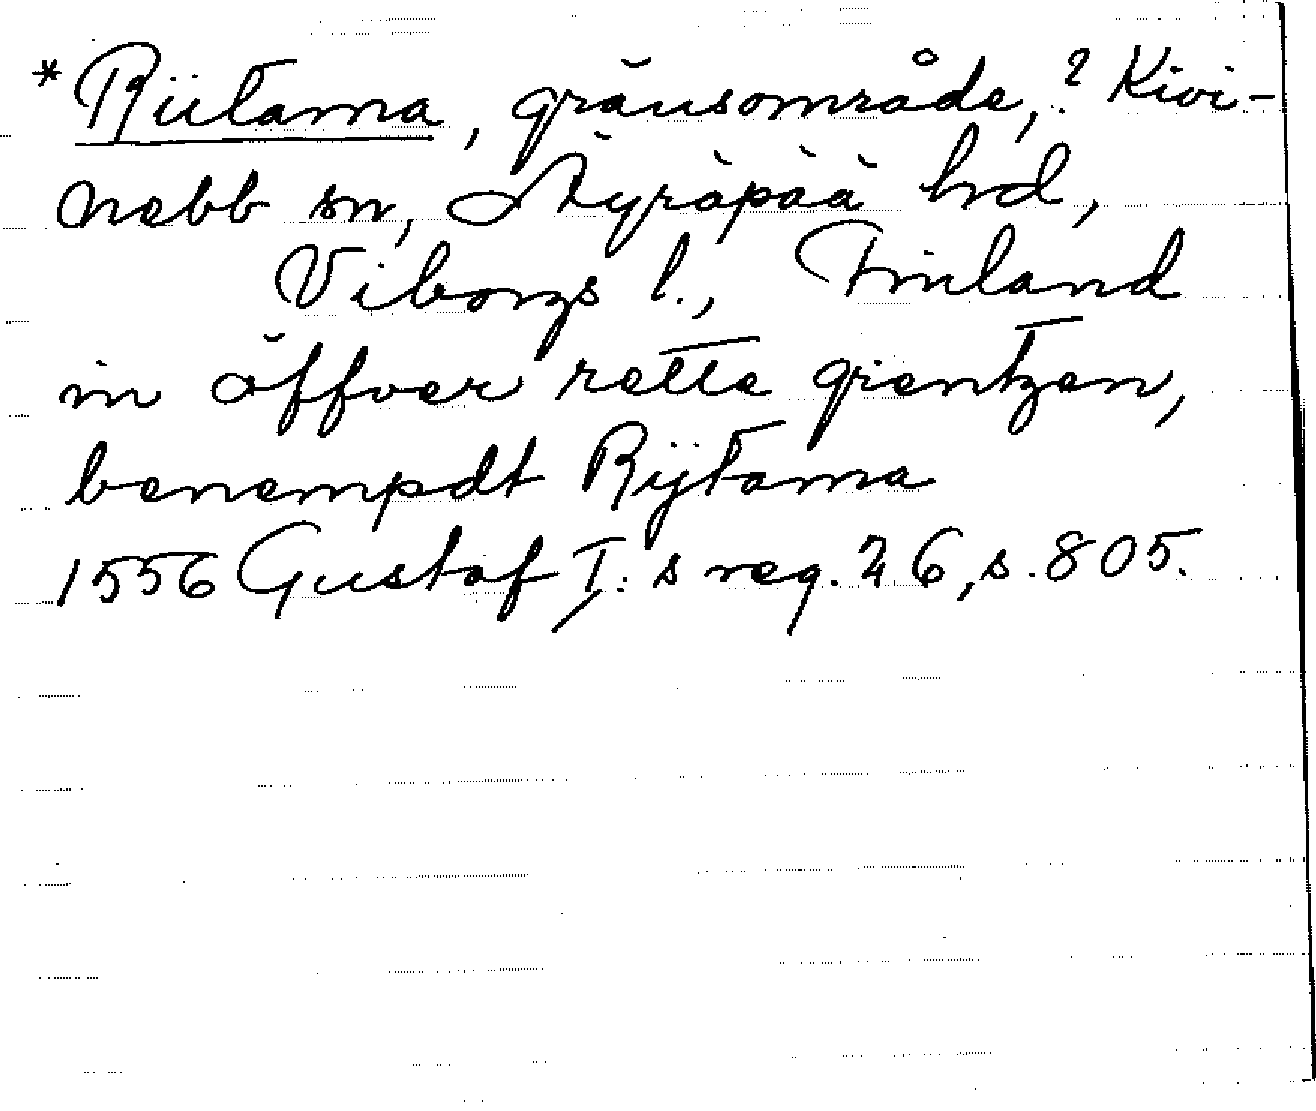 *Riitama, gränsområde, ? Kivi-
nebb sn, Äyräpää hd,
Viborgs l., Finland
in öffver rette grentzen,
benempdt Rijtama
1556 Gustaf I:s reg. 26, s. 805.